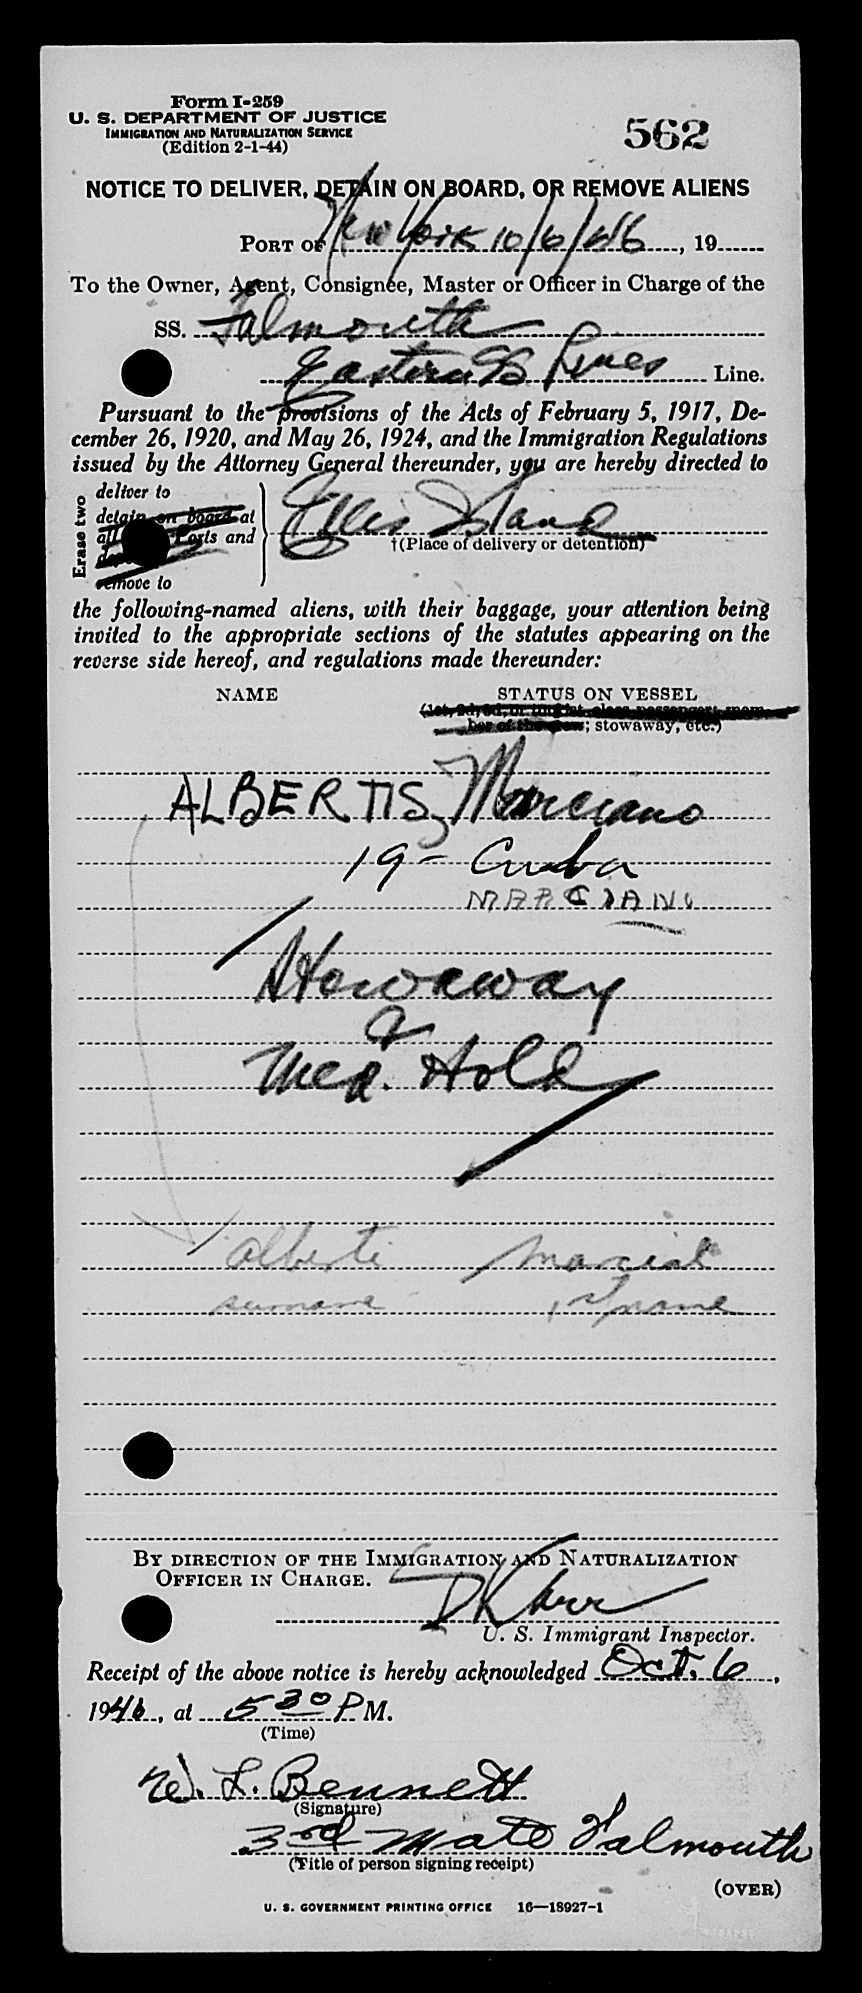 Form I-259
U. S. DEPARTMENT OF JUSTICE
IMMIGRATION AND NATURALIZATION SERVICE
(Edition 2-1-44)
562
NOTICE TO DELIVER, DETAIN ON BOARD, OR REMOVE ALIENS
PORT OF New York 10/6/46, 19
To the Owner, Agent, Consignee, Master or Officer in Charge of the
SS. Falmouth
Eastern SS Lines Line.
Pursuant to the provisions of the Acts of February 5, 1917, De-
cember 26, 1920, and May 26, 1924, and the Immigration Regulations
issued by the Attorney General thereunder, you are hereby directed to
Erase two
deliver to
detain on board at
all Ports and
remove to
Ellis Island
†(Place of delivery or detention)
the following-named aliens, with their baggage, your attention being
invited to the appropriate sections of the statutes appearing on the
reverse side hereof, and regulations made thereunder:
NAME STATUS ON VESSEL
; stowaway, etc.)
ALBERTIS, Marciano
19 - Cuba
MARCIANO
Stowaway
&
Med. Hold
Alberti Marcial
surname 1st name
BY DIRECTION OF THE IMMIGRATION AND NATURALIZATION
OFFICER IN CHARGE.
U. S. Immigrant Inspector.
Receipt of the above notice is hereby acknowledged Oct. 6,
1946, at 5 30 P M.
(Time)
W. L. Bennett
(Signature)
3rd Mate Falmouth
(Title of person signing receipt)
(OVER)
U. S. GOVERNMENT PRINTING OFFICE 16—18927-1